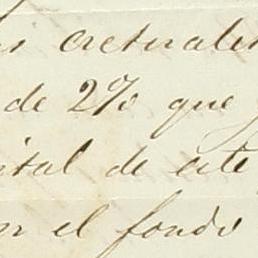 actuales
de 2% que
ital de este
el fondo